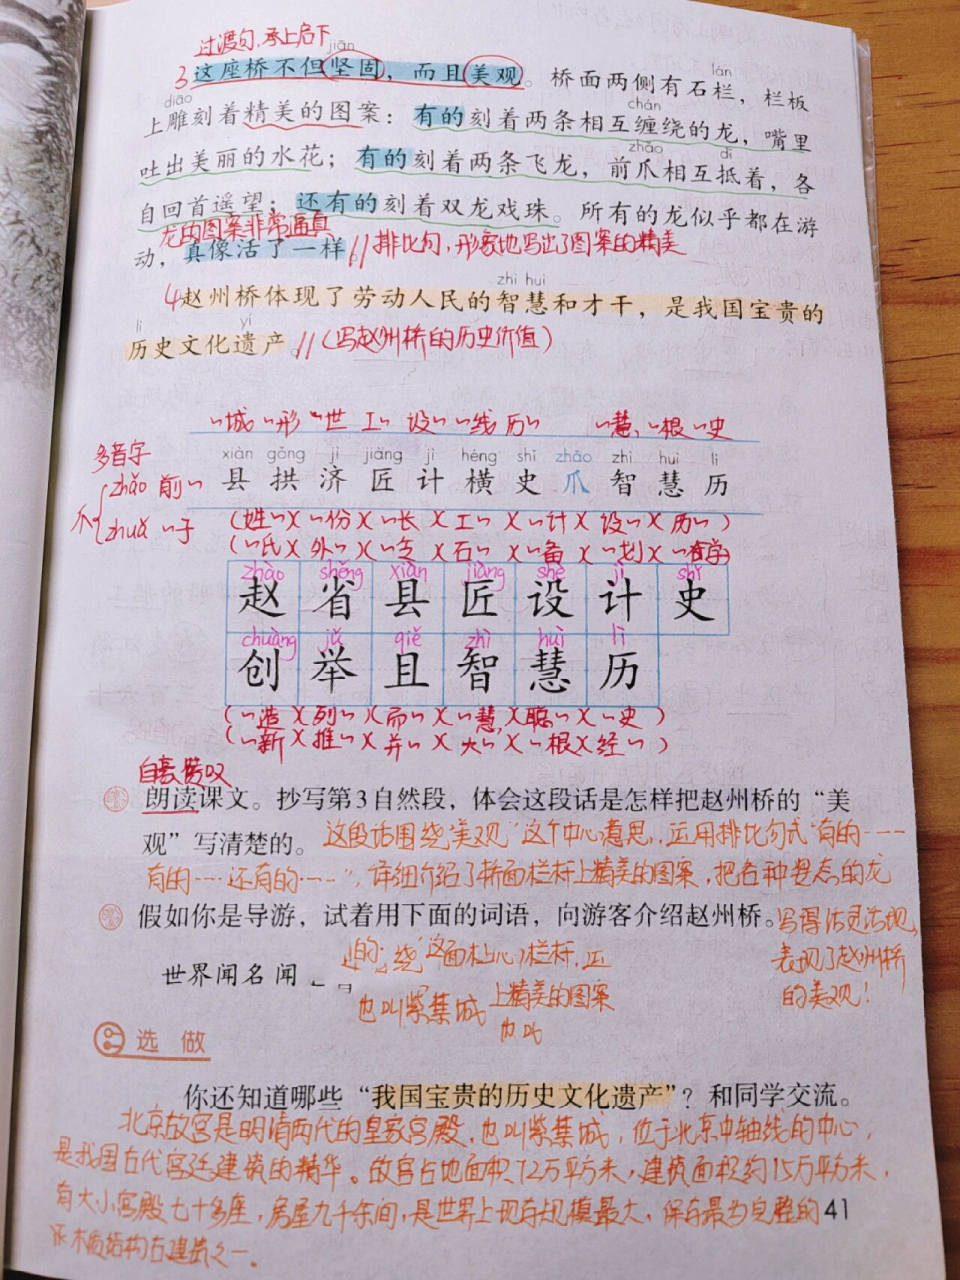 过渡句,承上启下
jiān
3这座桥不但坚固，而且美观。桥面两侧有石栏，栏板
diāo lán
上雕刻着精美的图案：有的刻着两条相互缠绕的龙，嘴里
chán
吐出美丽的水花；有的刻着两条飞龙，前爪相互抵着，各
zhǎo dǐ
自回首遥望；还有的刻着双龙戏珠。所有的龙似乎都在游
龙的图案非常逼真
动，真像活了一样。//排比句,形象地写出了图案的精美
zhì huì
4赵州桥体现了劳动人民的智慧和才干，是我国宝贵的
lì yí
历史文化遗产。//(写赵州桥的历史价值)
〃城 〃形 〃世 工〃 设〃 〃线 历〃 〃慧 〃根 〃史
多音字
xiàn gǒng jì jiàng jì héng shǐ zhǎo zhì huì lì
县 拱 济 匠 计 横 史 爪 智 慧 历
爪{zhǎo 前〃
zhuǎ 〃子
(姓〃)(〃份)(〃长)(工〃)(〃计)(设〃)(历〃)
(〃氏)(外〃)( )(石〃)(〃备)(〃划)( )
zhào shěng xiàn jiàng shè jì shǐ
赵 省 县 匠 设 计 史
chuàng jǔ qiě zhì huì lì
创 举 且 智 慧 历
(〃造)(列〃)(而〃)(〃慧)(聪〃)(〃史)
(〃新)(推〃)(并〃)(大〃)(〃根)(经〃)
自豪赞叹
朗读课文。抄写第3自然段，体会这段话是怎样把赵州桥的“美
观”写清楚的。这段话围绕“美观”这个中心意思,运用排比句式“有的……
有的……还有的……”,详细介绍了桥面栏杆上精美的图案,把各种姿态的龙
假如你是导游，试着用下面的词语，向游客介绍赵州桥。写得活灵活现,
表现了赵州桥
的美观!
世界闻名 闻
也叫紫禁城 上精美的图案
也叫
选做
你还知道哪些“我国宝贵的历史文化遗产”？和同学交流。
北京故宫是明清两代的皇家宫殿,也叫紫禁城,位于北京中轴线的中心,
是我国古代宫廷建筑的精华。故宫占地面积72万平方米,建筑面积约15万平方米,
有大小宫殿七十多座,房屋九千余间,是世界上现存规模最大、保存最为完整的
木质结构古建筑之一。
41